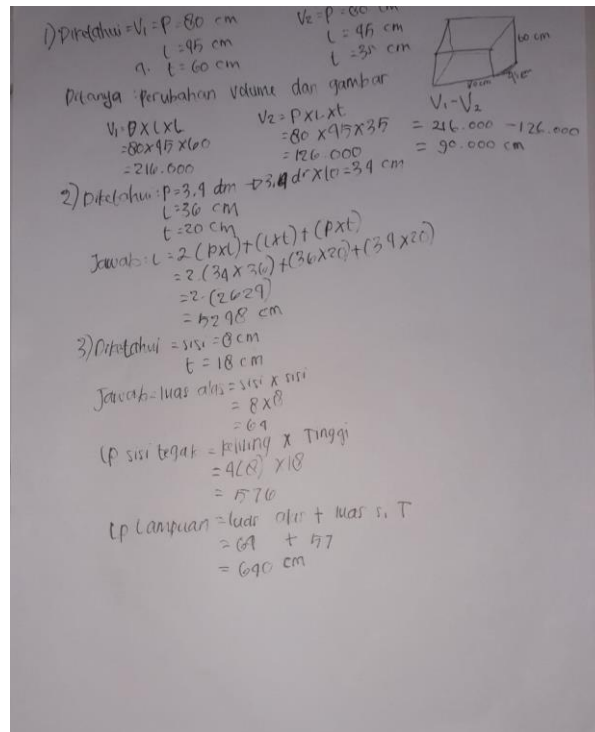 1) Diketahui = V1 = P = 80 cm
l = 45 cm
a. t = 60 cm
V2 = P = 80 cm
l = 45 cm
t = 35 cm
60 cm
80 cm
Ditanya : Perubahan volume dan gambar
V1 = P x L x t
= 80 x 45 x 60
= 216.000
V2 = P x L x t
= 80 x 45 x 35
= 126.000
V1 - V2
= 216.000 - 126.000
= 90.000 cm
2) Diketahui : P = 3.4 dm → 3.4 x 10 = 34 cm
L = 36 cm
t = 20 cm
Jawab : L = 2 (pxl) + (lxt) + (pxt)
= 2 . (34 x 36) + (36 x 20) + (34 x 20)
= 2 . (2629)
= 5248 cm
3) Diketahui = sisi = 8 cm
t = 18 cm
Jawab = luas alas = sisi x sisi
= 8 x 8
= 64
Lp sisi tegak = keliling x Tinggi
= 4(8) x 18
= 576
Lp Lampuan = luas alas + luas s. T
= 64 + 57
= 640 cm